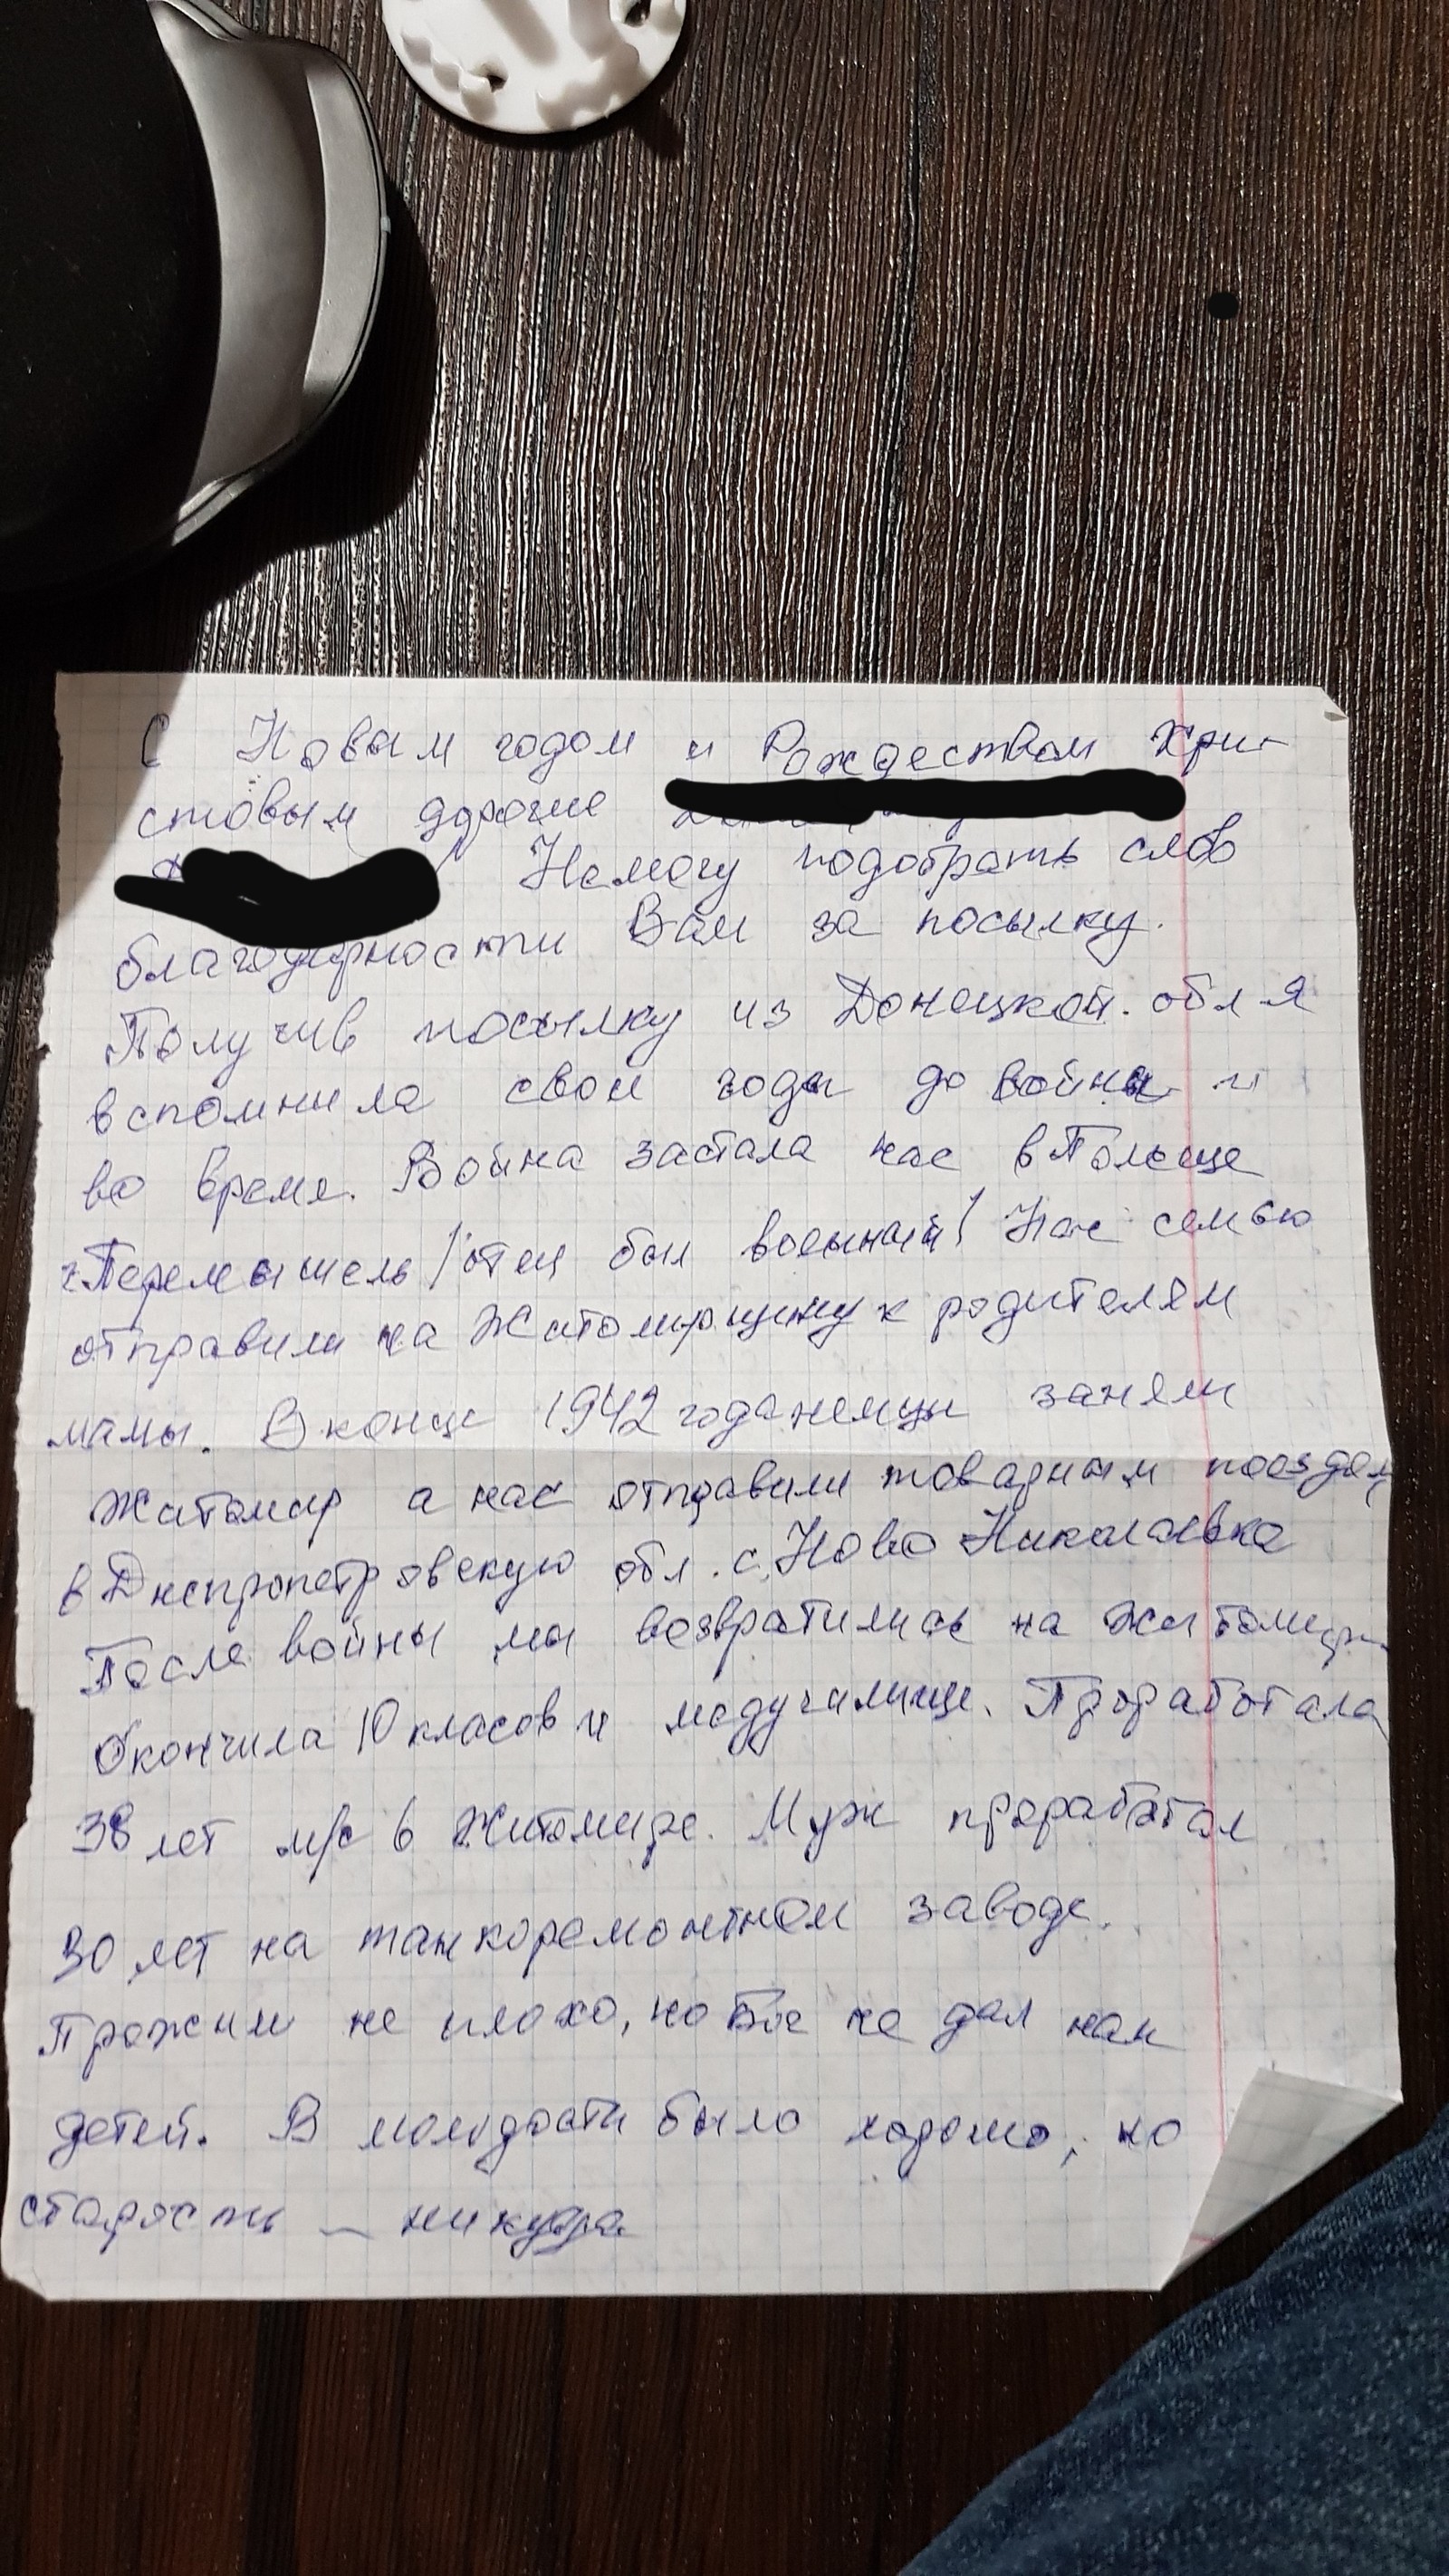 С Новым годом и Рождеством Хри-
стовым дорогие
Немогу подобрать слов
благодарности Вам за посылку.
Получив посылку из Донецкой. обл я
вспомнила свои годы до войны и
во время. Война застала нас в Польше
г. Перемышель /отец был военный/ Нас семью
отправили на Житомирщину к родителям
мамы. В конце 1942 года немцы заняли
Житомир а нас отправили товарным поездом
в Днепропетровскую обл. с. Ново Николаевка
После войны мы возвратились на Житомир.
Окончила 10 класов и медучилище. Проработала
38 лет м/с в Житомире. Муж проработал
30 лет на танкоремонтном заводе.
Прожили не плохо, но Бог не дал нам
детей. В молодости было хорошо, но
старость — никуда